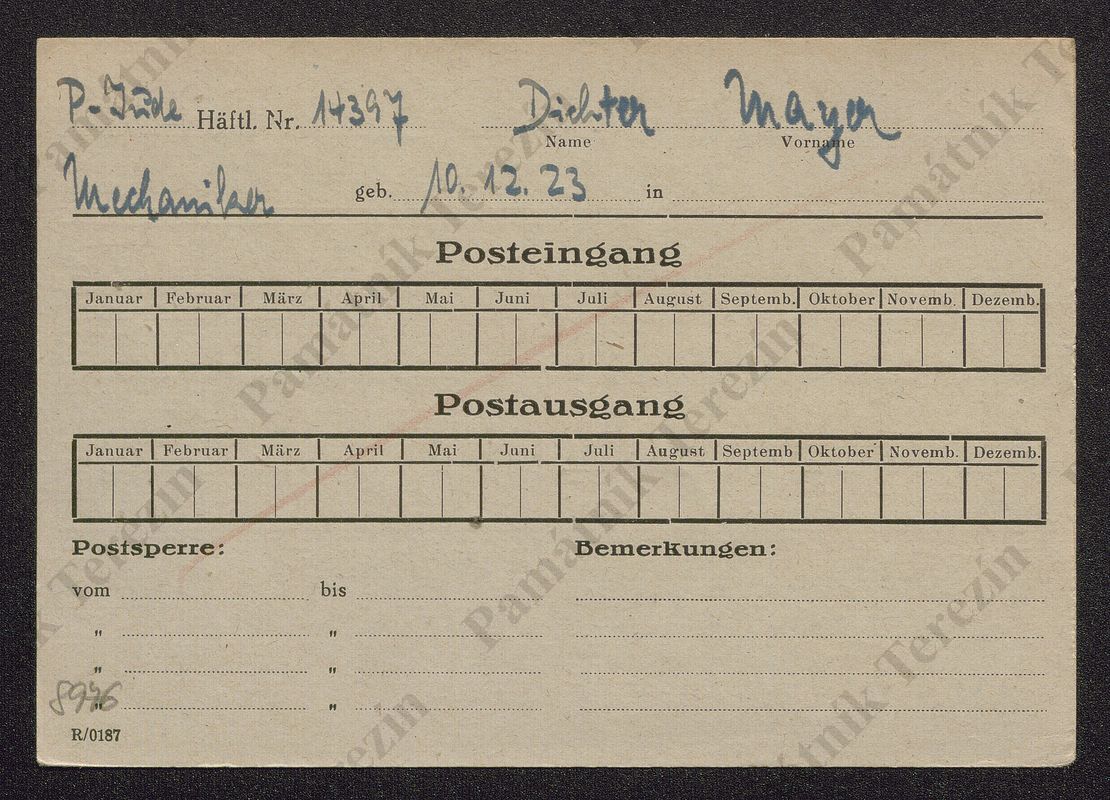 P-Jude Häftl. Nr. 14397 Dichter Mayer
Name Vorname
Mechaniker geb. 10. 12. 23 in
Posteingang
Januar Februar März April Mai Juni Juli August Septemb. Oktober Novemb. Dezemb.
Postausgang
Januar Februar März April Mai Juni Juli August Septemb Oktober Novemb. Dezemb.
Postsperre: Bemerkungen:
vom bis
" "
" "
" "
8976
R/0187
Památník Terezín